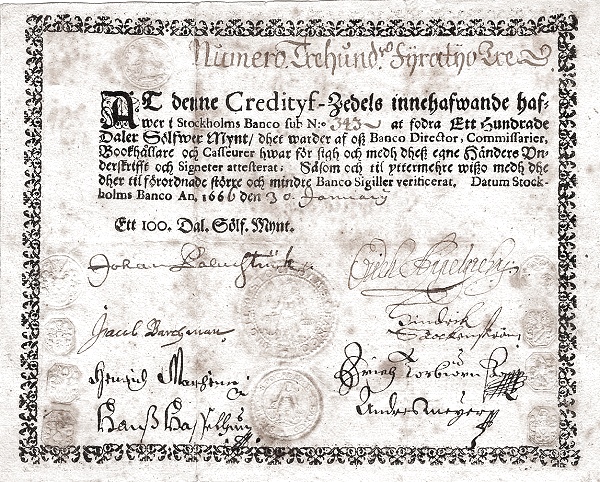 Numero Trehund:o Fyratÿo Tre
AT denne Credityf-Zedels innehafwande haf-
wer i Stockholms Banco sub N:o 343 at fodra Ett Hundrade
Daler Sölfwer Mynt/ dhet warder af oß Banco Director, Commissarier,
Bookhållare och Casseurer hwar för sigh och medh dheß egne Händers Vn-
derskrifft och Signeter attesterat; Såsom och til yttermehre wißo medh dhe
dher til förordnade större och mindre Banco Sigiller verificerat. Datum Stock-
holms Banco An. 1666 den 30 January
Ett 100. Dal. Sölf. Mynt.
Johan Palmstruck
Jacob Barckman
Hindrik
Hans
Anders Meyer